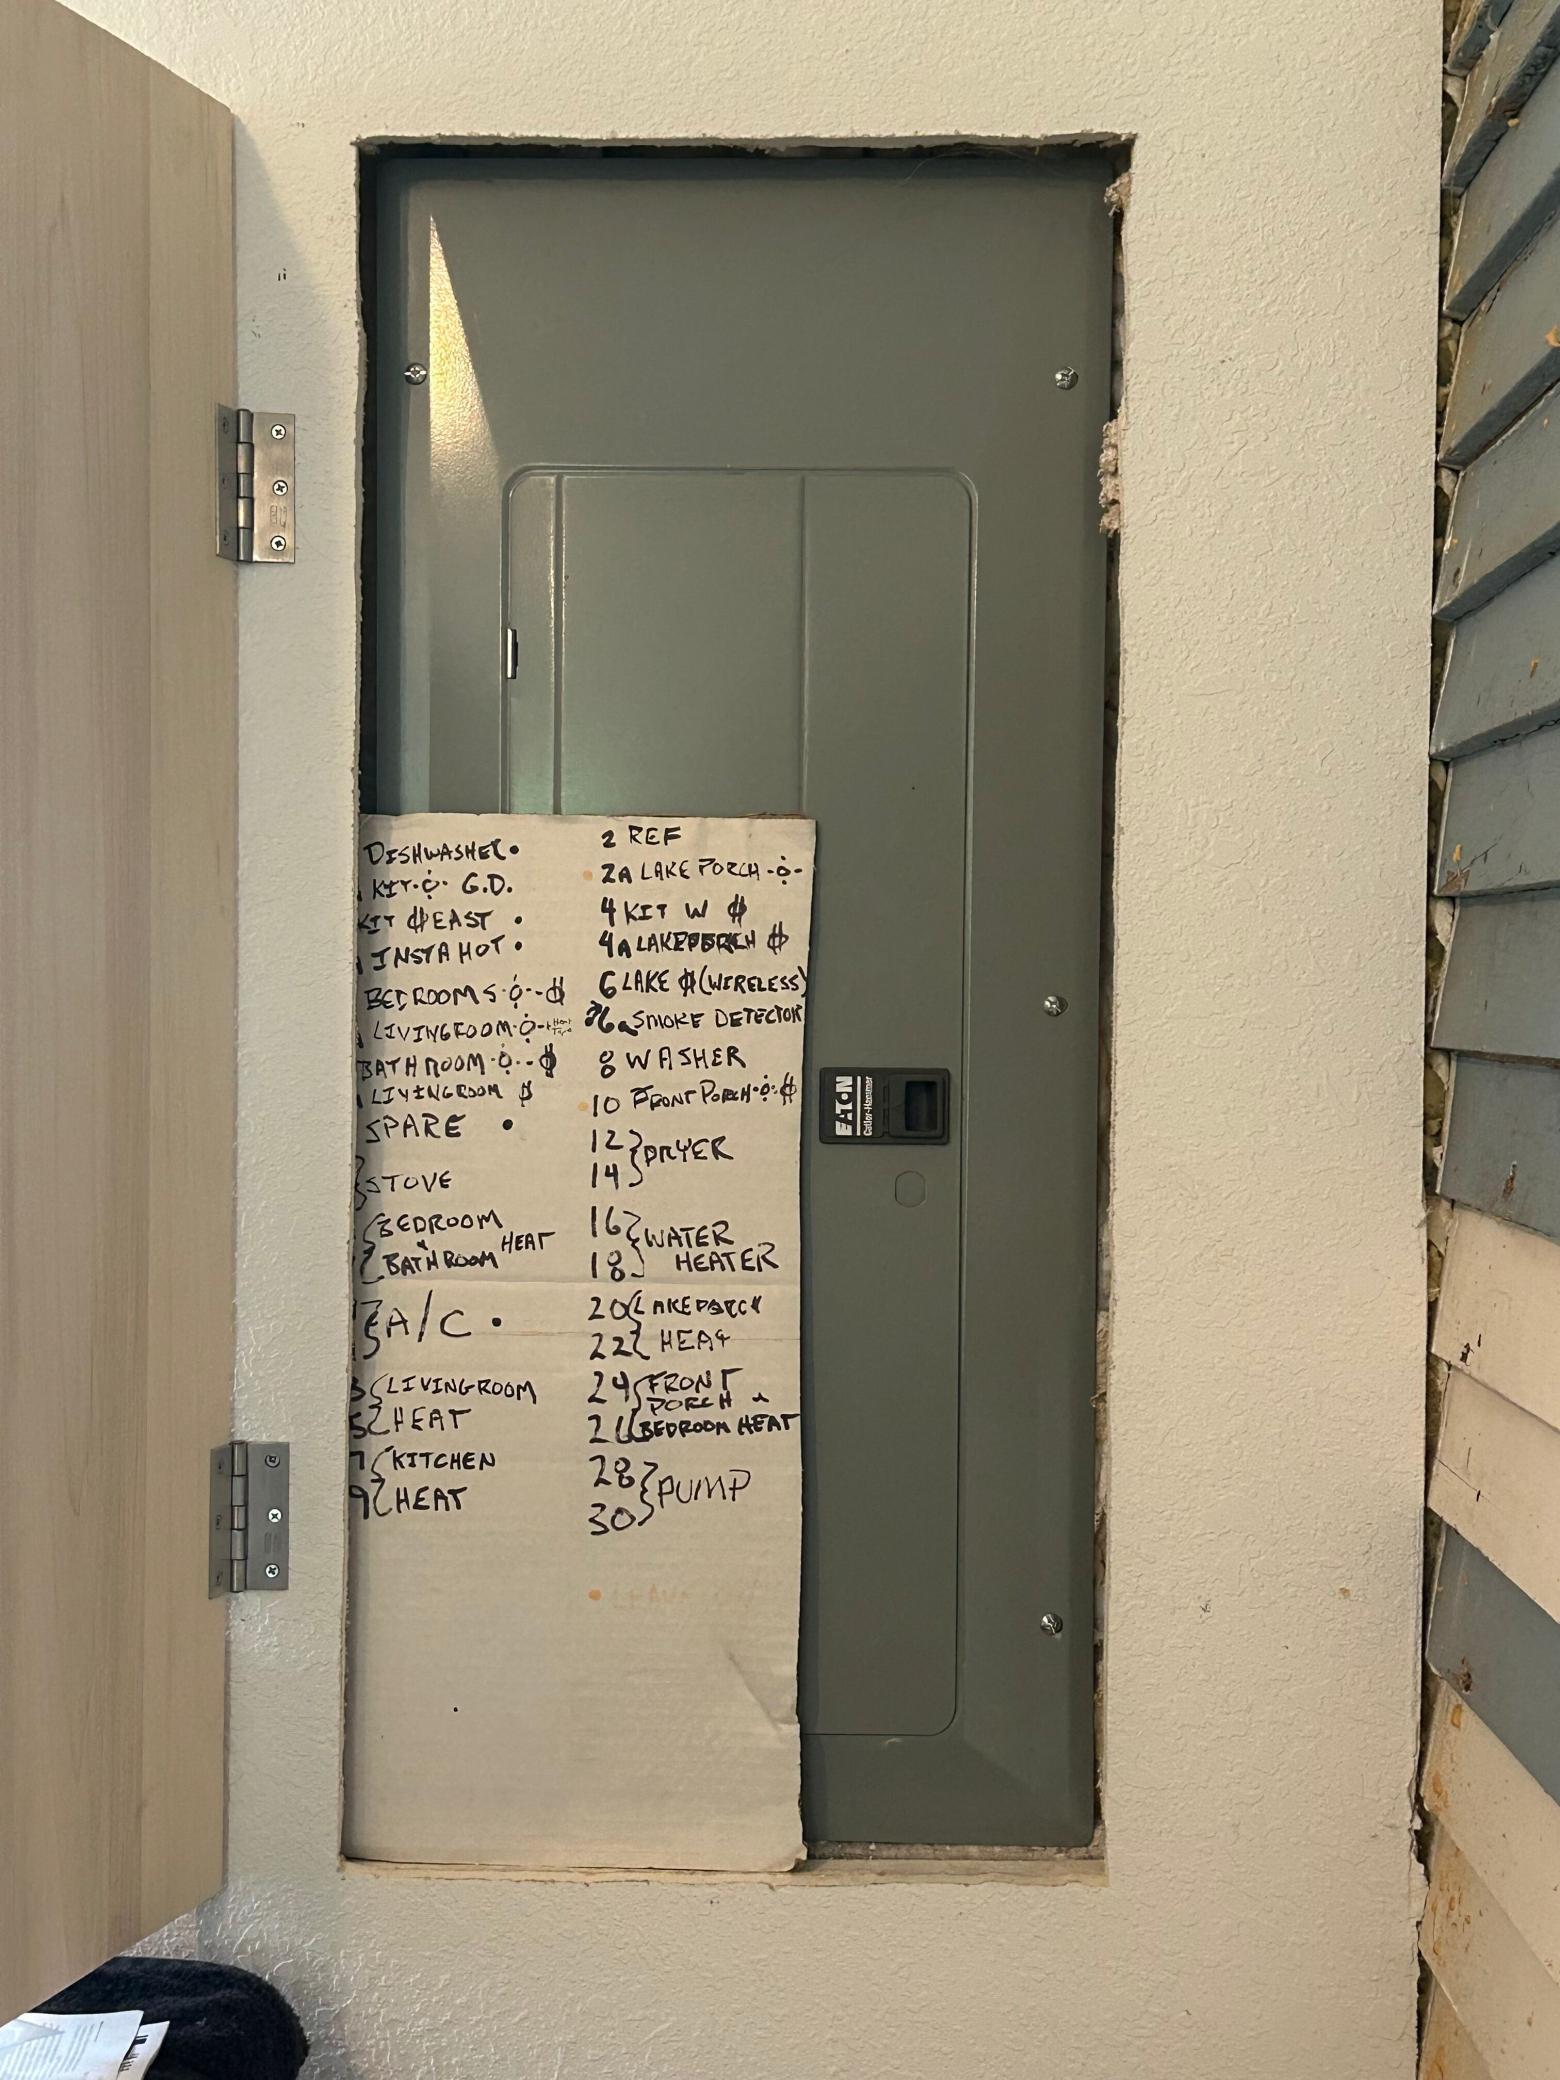 DISHWASHER •
KIT G.D.
KIT EAST •
INSTA HOT •
BEDROOMS
LIVINGROOM
BATHROOM
LIVINGROOM
SPARE •
STOVE
BEDROOM
& HEAT
BATHROOM
A/C •
3 LIVINGROOM
5 HEAT
7 KITCHEN
9 HEAT
2 REF
• 2A LAKE PORCH
4 KIT W
4A LAKEPORCH
6 LAKE (WIRELESS)
6a SMOKE DETECTOR
8 WASHER
• 10 FRONT PORCH
12 } DRYER
14
16 } WATER
18 HEATER
20 { LAKEPORCH
22 HEAT
24 { FRONT
PORCH &
26 BEDROOM HEAT
28 } PUMP
30
• LEAVE
EATON
Cutler-Hammer